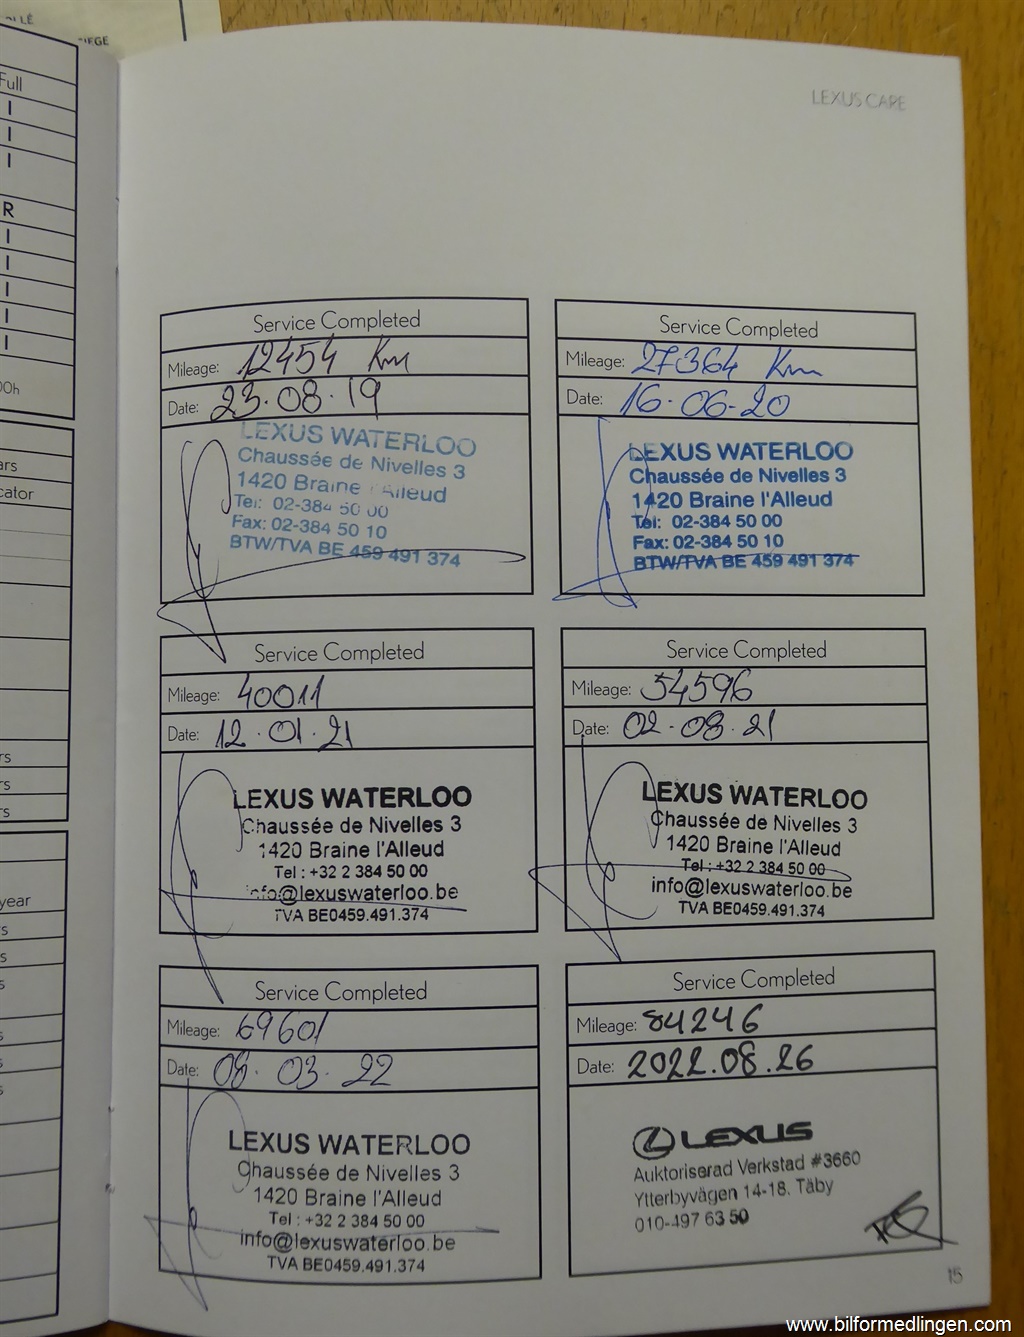 LLÉ
SIEGE
Full
I
I
I
R
I
I
I
I
I
00h
ars
cator
rs
rs
rs
year
s
s
s
s
s
s
LEXUS CARE
Service Completed
Mileage: 12454 Km
Date: 23.08.19
LEXUS WATERLOO
Chaussée de Nivelles 3
1420 Braine l'Alleud
Tel: 02-384 50 00
Fax: 02-384 50 10
BTW/TVA BE 459 491 374
Service Completed
Mileage: 27364 Km
Date: 16-06-20
LEXUS WATERLOO
Chaussée de Nivelles 3
1420 Braine l'Alleud
Tel: 02-384 50 00
Fax: 02-384 50 10
BTW/TVA BE 459 491 374
Service Completed
Mileage: 40011
Date: 12.01.21
LEXUS WATERLOO
Chaussée de Nivelles 3
1420 Braine l'Alleud
Tel : +32 2 384 50 00
info@lexuswaterloo.be
TVA BE0459.491.374
Service Completed
Mileage: 54596
Date: 02-08-21
LEXUS WATERLOO
Chaussée de Nivelles 3
1420 Braine l'Alleud
Tel : +32 2 384 50 00
info@lexuswaterloo.be
TVA BE0459.491.374
Service Completed
Mileage: 69601
Date: 08.03.22
LEXUS WATERLOO
Chaussée de Nivelles 3
1420 Braine l'Alleud
Tel : +32 2 384 50 00
info@lexuswaterloo.be
TVA BE0459.491.374
Service Completed
Mileage: 84246
Date: 2022.08.26
LEXUS
Auktoriserad Verkstad #3660
Ytterbyvägen 14-18. Täby
010-497 63 50
15
www.bilformedlingen.com